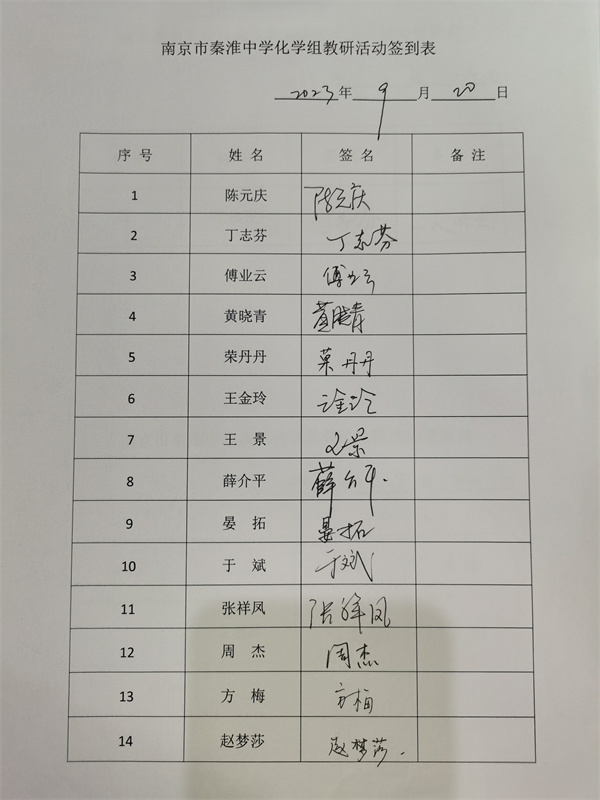 南京市秦淮中学化学组教研活动签到表
2023年 9月 20日
序号 姓名 签名 备注
1 陈元庆 陈元庆
2 丁志芬 丁志芬
3 傅业云 傅业云
4 黄晓青 黄晓青
5 荣丹丹 荣丹丹
6 王金玲 王金玲
7 王 景 王景
8 薛介平 薛介平.
9 晏 拓 晏拓
10 于 斌 于斌
11 张祥凤 张祥凤
12 周 杰 周杰
13 方 梅 方梅
14 赵梦莎 赵梦莎.